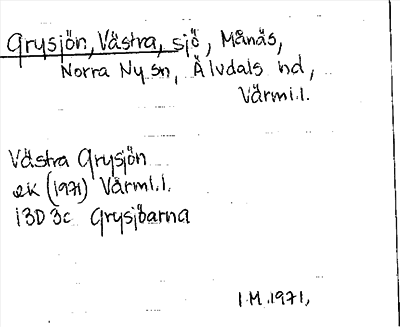 Grysjön, Västra, sjö, Månäs,
Norra Ny sn, Älvdals hd,
Värml.l.
Västra Grysjön
ek (1971) Värml.l.
13D 3c Grysjöarna
I.M. 1971,